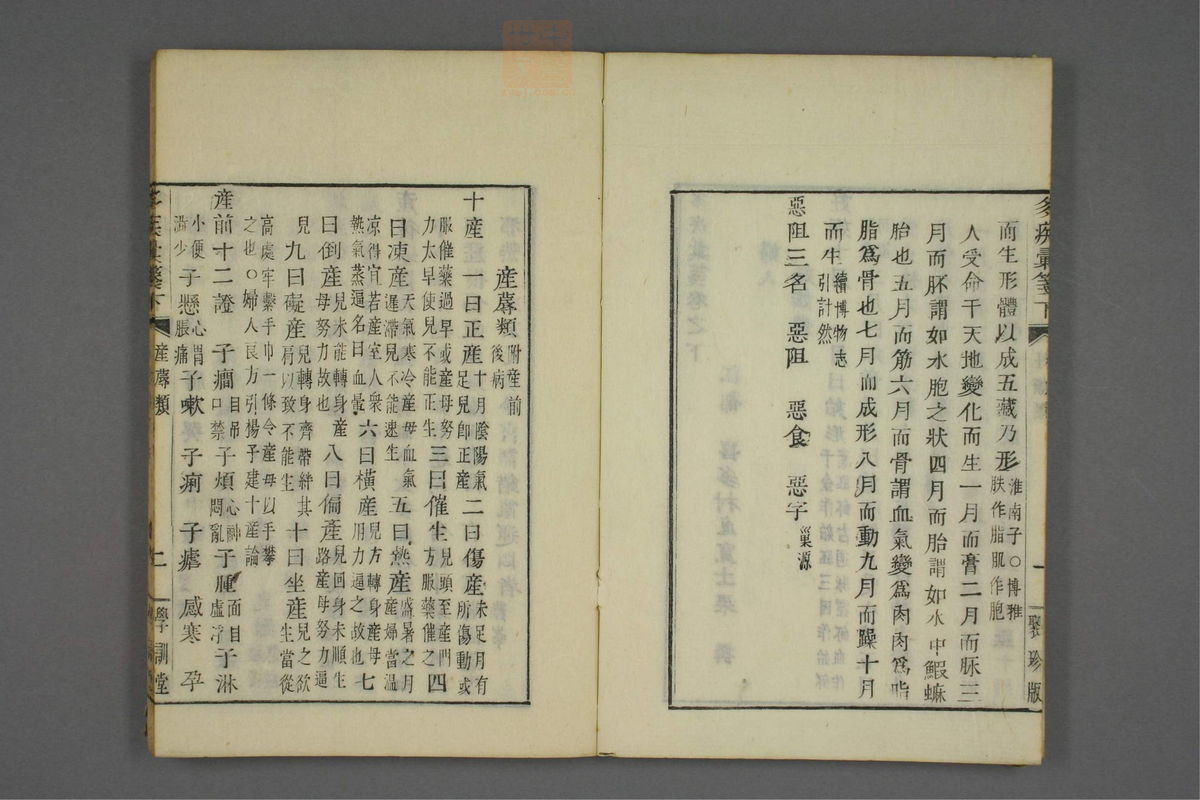 疾彙箋下 一 聚珍版
而生形體以成五藏乃形 淮南子○博雅
肤作脂肌作胞
人受命于天地變化而生一月而膏二月而脈三
月而胚謂如水胞之狀四月而胎謂如水中鰕蟆
胎也五月而筋六月而骨謂血氣變爲肉肉爲脂
脂爲骨也七月而成形八月而動九月而躁十月
而生 續博物志
引計然
惡阻三名 惡阻 惡食 惡字 巢源
産蓐類 附産前
後病
十産 一曰正産 十月陰陽氣
足兒卽正産 二曰傷産 未足月有
所傷動或
服催藥過早或産母努
力太早使兒不能正生 三曰催生 兒頭至産門
方服藥催之 四
曰凍産 天氣寒冷産母血氣
遲滯兒不能速生 五曰熱産 盛暑之月
産婦當温
凉得宜若産室人衆
熱氣蒸逼名曰血暈 六曰橫産 兒方轉身産母
用力逼之故也 七
曰倒産 兒未能轉身産
母努力故也 八曰偏産 兒回身未順生
路産母努力逼
兒 九曰礙産 兒轉身齊帶絆其
肩以致不能生 十曰坐産 兒之欲
生當從
高處牢繫手巾一條令産母以手攀
之也○婦人良方引楊子建十産論
産前十二證 子癎 目吊
口禁 子煩 心神
悶亂 子腫 面目
虛浮 子淋
小便
澁少 子懸 心胃
脹痛 子嗽 子痢 子瘧 感寒 孕
疾彙箋下 産蓐類 二 學訓堂